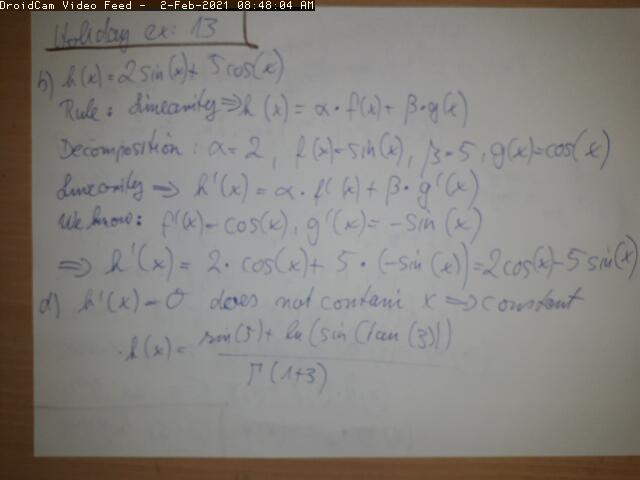 DroidCam Video Feed - 2-Feb-2021 08:48:04 AM
Holiday ex: 13
b) h(x) = 2 sin(x) + 5 cos(x)
Rule: Linearity ⇒ h(x) = α · f(x) + β · g(x)
Decomposition: α = 2, f(x) = sin(x), β = 5, g(x) = cos(x)
Linearity ⇒ h'(x) = α · f'(x) + β · g'(x)
We know: f'(x) = cos(x), g'(x) = -sin(x)
⇒ h'(x) = 2 · cos(x) + 5 · (-sin(x)) = 2cos(x) - 5 sin(x)
d) h'(x) = 0 does not contain x ⇒ constant
h(x) = sin(5) + ln(sin(tan(3)))
Γ(1+3)